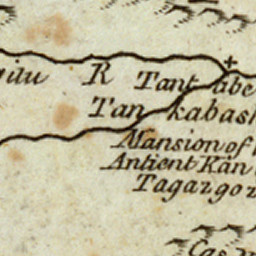 gilu R Tant abe
Tan kabash
Mansion of
Antient Kan
Tagazgoz
Cas